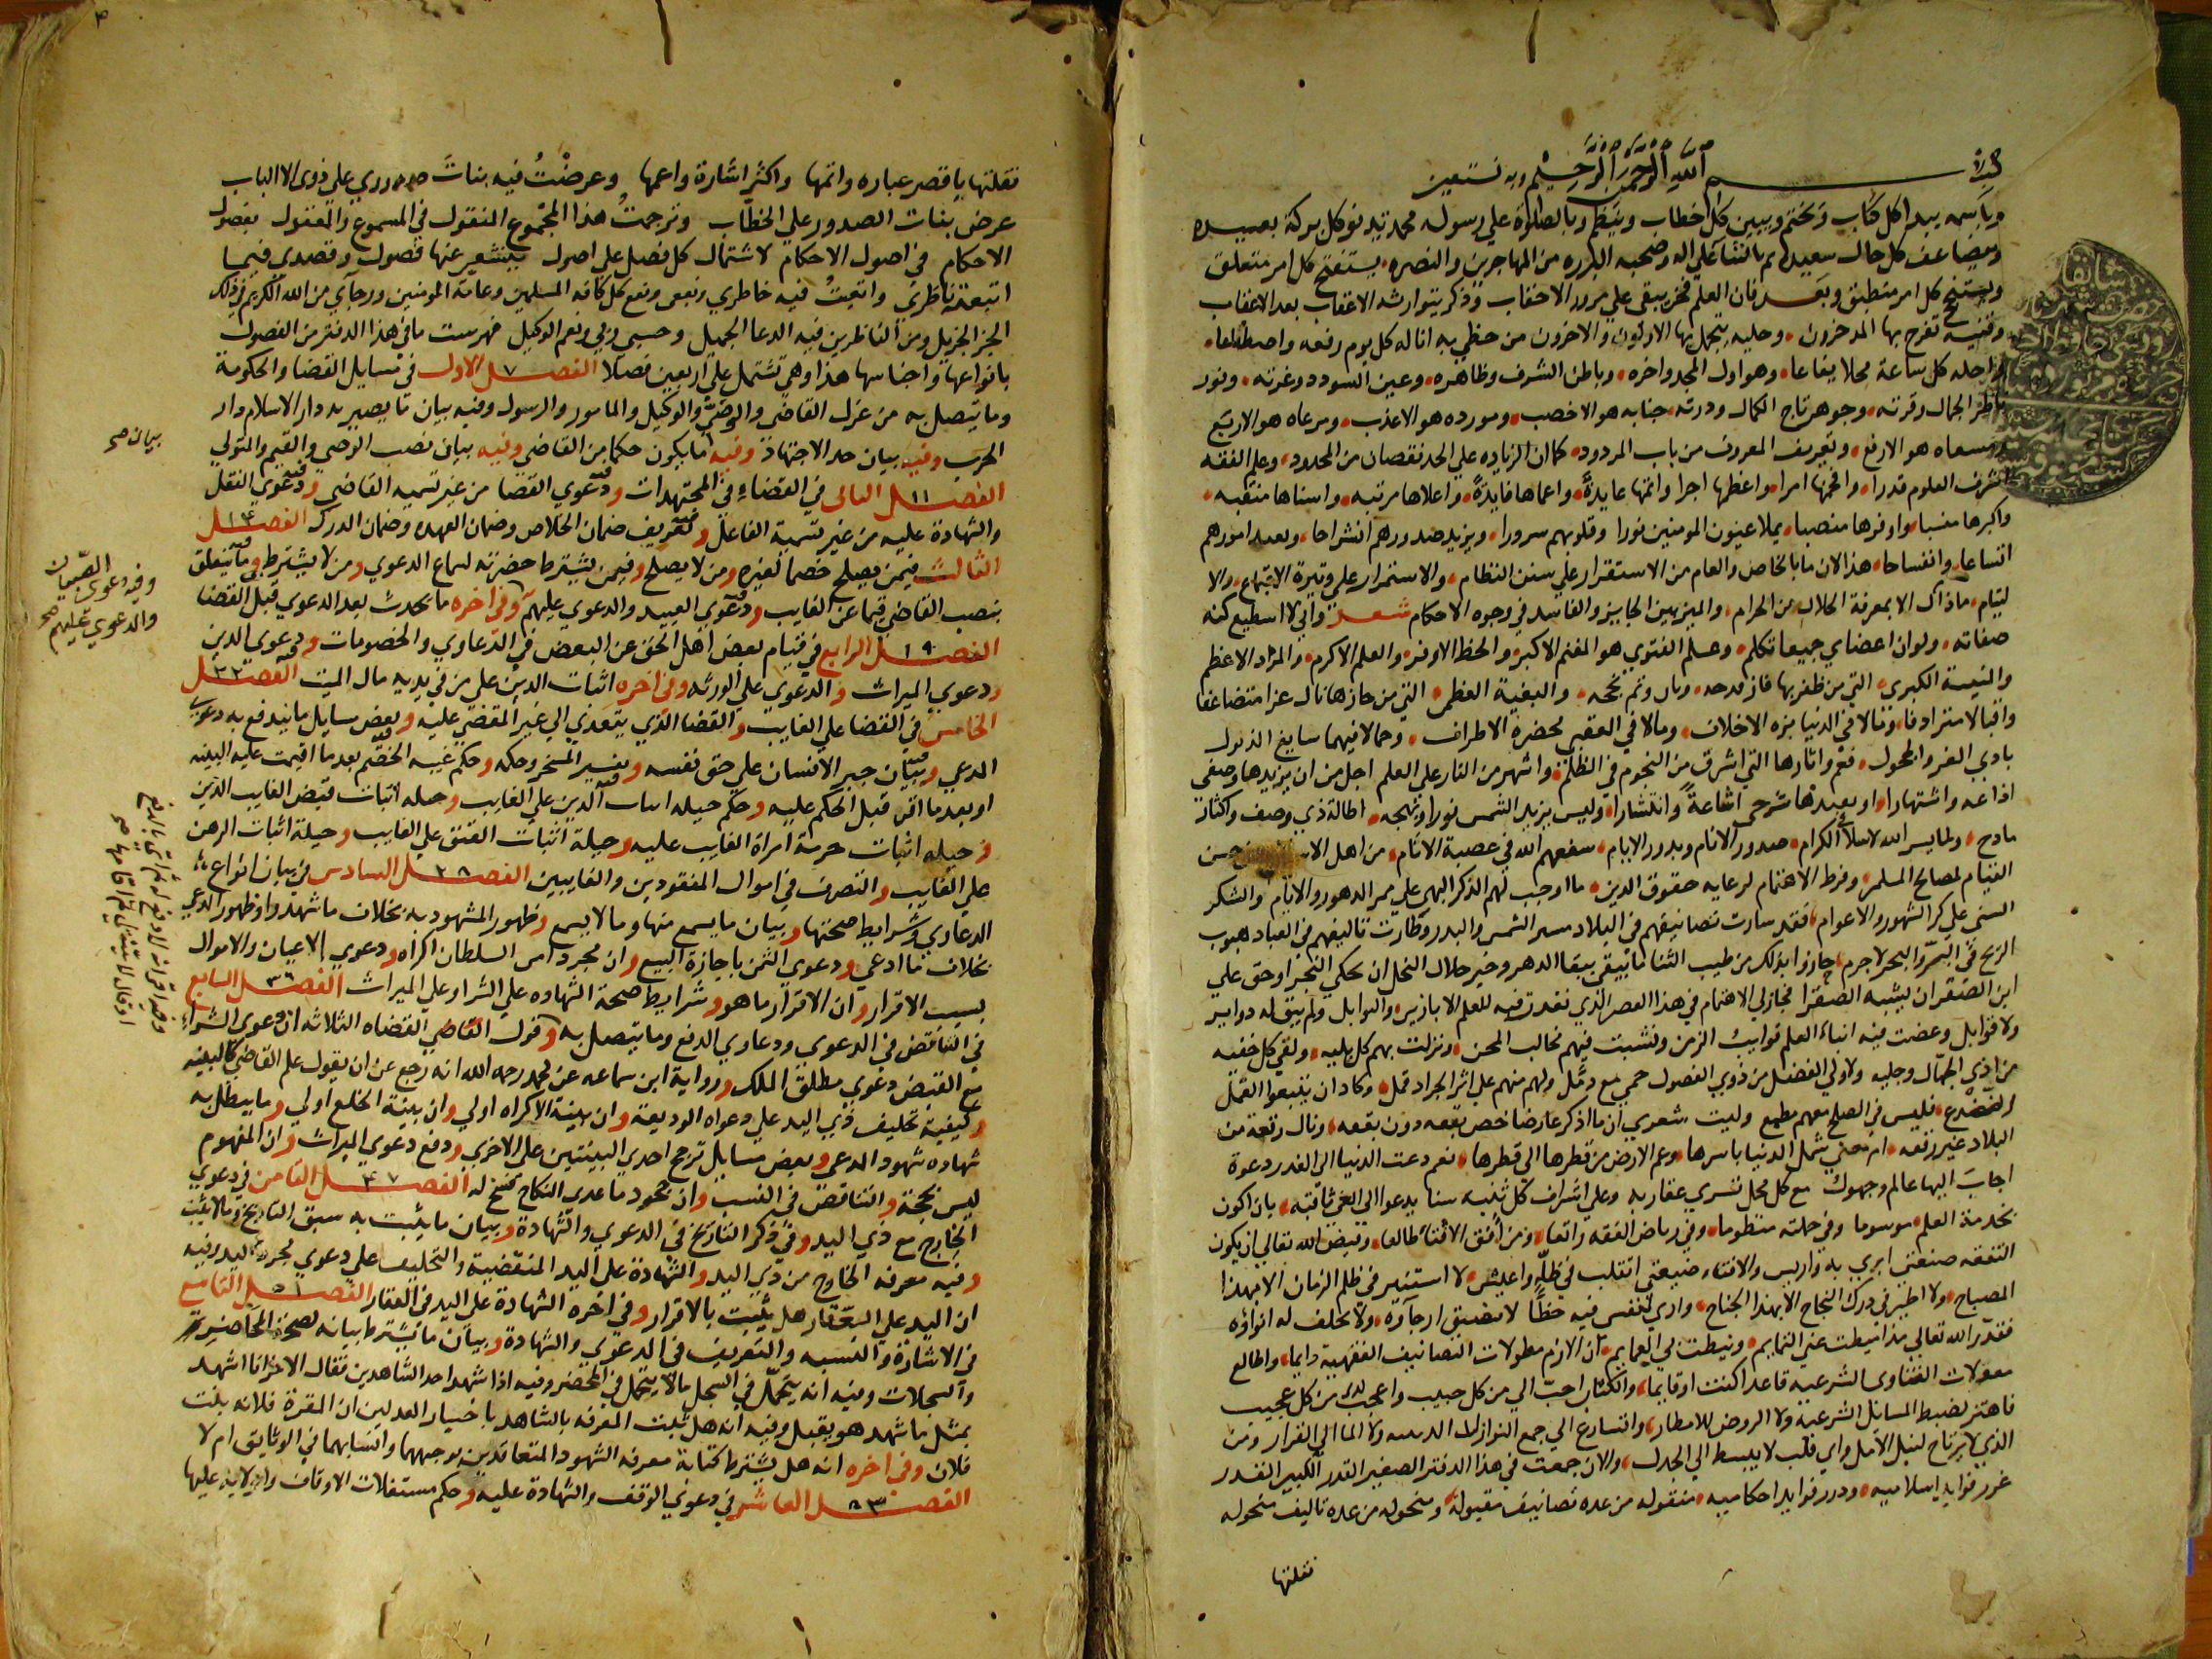 بسم الله الرحمن الرحيم وبه نستعين
وباسمه يبدا كل كتاب ويختم ويبين كل خطاب وينظم وبالصلوة على رسوله محمد
ويضاعف كل حال سعيده ثم بالثنا على اله وصحبه البرره من المهاجرين والنصره يستفتح كل امر متعلق
ويستنجح كل امر منطبق وبعد فان العلم فخر يبقى على مرور الاحقاب وذكر يتوارثه الاعقاب بعد الاعقاب
وقنيه تفرح بها المدخرون وحليه يتجمل بها الاولون والاخرون من حظي به اناله كل يوم رفعه واصطناعا
واحله كل ساعة محلا يفاعا وهو اول المجد واخره وباطن الشرف وظاهره وعين السودد وغرته ونور
ناظر الجمال وقرته وجوهر تاج الكمال ودرته جنابه هو الاخصب ومورده هو الاعذب ومرعاه هو الاربع
ومسعاه هو الارفع وتعريف المعروف من باب المردود كما ان الزياده على الحد نقصان من المحدود وعلم الفقه
اشرف العلوم قدرا وافخمها امرا واعظمها اجرا واتمها عايدة واعمها فايدة واعلاها مرتبه واسناها منقبه
واكبرها منسبا واوفرها منصبا يملا عيون المومنين نورا وقلوبهم سرورا ويزيد صدورهم انشراحا ويفيد امورهم
اتساعا وانفساحا هذا لان ما بالخاص والعام من الاستقرار على سنن النظام والاستمرار على وتيرة الاجتماع والا
ليتام ماذاك الا بمعرفة الحلال من الحرام والميز بين الجايز والفاسد في وجوه الاحكام شعر واني لا اسطيع كنه
صفاته ولو ان اعضاي جميعا تكلم وعلم الفتوي هو المغنم الاكبر والحظ الاوفر والعلم الاكرم والمراد الاعظم
والنيسة الكبري التي من ظفر بها فاز قدحه وبان وتم نجحه والبغية العظمى التي من حازها نال عزا متضاعفا
واقبالا مترادفا ونالا في الدنيا بزه الاخلاف ومالا في العقبى لحضرة الاطراف وحمالا فيهما سابغ الذيول
بادي الغرر والحجول فعم واثارها التي اشرق من النجوم في الظلم واشهر من النار على العلم اجل من ان يزيدها وصفى
اذاعه واشتهارا او يفيدها شرحى اشاعة وانتشارا وليس يزيد الشمس نورا وبهجه اطالة ذي وصف واكثار
مادح ولما يسر الله لاسلا الكرام صدور الانام وبدور الايام سفعهم الله في عصبة الانام من اهل حسن
القيام لمصالح المسلمين وفرط الاهتمام لرعايه حقوق الدين ما اوجب لهم الذكر البهي على ممر الدهور والايام والشكر
السني على كر الشهور والاعوام فقد سارت تصانيفهم في البلاد مسير الشمس والبدر وطارت تاليفهم في العباد هبوب
الريح في البر والبحر لاجرم حازوا بذلك من طيب الثنا ما يبقى بقا الدهر وخير حلال النجل ان يحكي النجر وحق علي
ابن الصقر ان يشبه الصقرا في هذا العصر الذي نفدت فيه للعلم الابازير والتوابل ولم يبق له دوابر
ولا قوابل وعضت فيه ابناء العلم نوايب الزمن ونشبت فيهم مخالب المحن ونزلت بهم كل بليه ولقي كل خفيه
من اذي الجهال وجليه ولاولي الفضل من ذوي الفضول حمى مع دمل ولهم منهم على اثر الجراد قمل وكاد ان يتبعوا القمل
والضفدع فليس في الصلح معهم مطمع وليت شعري ان ما اذكر عارضا خص بقعه دون بقعه ونال رقعة من
البلاد غير رقعه ام معنى شمل الدنيا باسرها وعم الارض من قطرها الى قطرها نعم دعت الدنيا الى الغدر دعوة
اجاب اليها عالم وجهول مع كل محل تسري عقاربه وعلى اشراف كل ثنيه سنا يدعوا الى الغي ثاقبه بان اكون
بخدمة العلم موسوما وفي حلته منظوما وفي رياض الفقه راتعا ومن افق الافتا طالعا وقيض الله تعالى ان يكون
التفقه صنعتى ابري به واريس والافتاء ضيعتي اتقلب في ظله واعيش لا استنير في ظلم الزمان الا بهذا
المصباح ولا اطير في درك النجاح الا بهذا الجناح واري لنفسي فيه حظا لا تضيق ارجاؤه ولا تخلف له انواؤه
فقدر الله تعالى مذ انيطت عني التمايم ونيطت لي العمايم ان الازم مطولات التصانيف الفقهية دايما واطالع
معولات الفتاوى الشرعيه قاعدا كنت او قايما والكتاب احب الي من كل حبيب واعجب لدي من كل عجيب
فاهتز لضبط المسايل الشرعية ولا الروض للامطار واتسارع الى جمع النوازل ولا الما الى القرار ومن
الذي لا يرتاح لنيل الامل واي قلب لا ينبسط الى الجدل والان جمعت في هذا الدفتر الصغير القدر الكبير القدر
غرر فوايد اسلاميه ودرر فوايد احكاميه منقوله من عدة تصانيف مقبولة ومنخوله من عدة تاليف منخوله
نقلتها
نقلتها باقصر عباره واتمها واكثر اشارة واعمها وعرضت فيه بنات صدوري على ذوى الالباب
عرض بنات الصدور على الخطاب وترجمت هذا المجموع المنقول في المسموع والمعقول بفصول
الاحكام في اصول الاحكام لاشتمال كل فصل على اصول يتشعب عنها فصول وقصدي فيما
اتبعت ناظري واتعبت فيه خاطري ونفع كل كافه المسلمين وعامة المومنين ورجآي من الله الكريم في ذلك
الجزا الجزيل ومن الناظرين فيه الدعا الجميل وحسبى ربي ونعم الوكيل فهرست ما في هذا الدفتر من الفصول
بانواعها واجناسها هذا وهي تشتمل على اربعين فصلا الفصل الاول في مسايل القضا والحكومة ٧
وما يتصل به من عزل القاضى والوصي والوكيل والمامور والرسول وفيه بيان ما يصير به دار الاسلام دار
الحرب وفيه بيان حد الاجتهاد وفيه ما يكون حكما من القاضي وفيه بيان نصب الوصي والقيم والمتولي
بيان صح
الفصل الثانى في القضاء في المجتهدات وفيه دعوي القضا من غير تسميه القاضي ودعوي النقل ١١
والشهادة عليه من غير تسمية الفاعل وفيه تعريف ضمان الخلاص وضمان العهده وضمان الدرك الفصل ١٤
الثالث فيمن يصلح خصما لغيره ومن لا يصلح وفيمن يشترط حضرته لسماع الدعوي ومن لا يشترط وما يتعلق
بنصب القاضي قيما عن الغايب وفيه دعوي العبيد والدعوي عليهم وفى اخره ما يحدث بعد الدعوي قبل القضا
وفيه دعوى الصبيان والدعوي عليهم صح
الفصل الرابع في قيام بعض اهل الحق عن البعض في الدعاوي والخصومات ودعوي الدين ١٩
ودعوي الميراث والدعوي على الورثه وفى اخره اثبات الدين على من في يديه مال الميت الفصل ٢٢
الخامس في القضا على الغايب والقضا الذي يتعدي الى غير المقضي عليه وبعض مسايل ما يندفع به دعوى
المدعي وبيان جبر الانسان على حق نفسه وتفسير المسخر وحكمه وحكم غيبه الخصم بعد ما اقيمت عليه البينه
او بعد ما اقر قبل الحكم عليه وحكم حيله اثبات الدين على الغايب وحيله اثبات قبض الغايب الدين
وحيله اثبات حرمة امراة الغايب عليه وحيلة اثبات العتق على الغايب وحيلة اثبات الرهن
على الغايب والتصرف في اموال المفقودين والغايبين الفصل السادس في بيان انواع ٢٨
الدعاوي وشرايط صحتها وبيان ما يسمع منها وما لا يسمع وظهور المشهود به بخلاف ما شهد او ظهور المدعي
بخلاف ما ادعي ودعوي الثمن باجازة البيع وان مجرد امر السلطان اكراه ودعوي الاعيان والاموال
بسبب الاقرار وان الاقرار ما هو وشرايط صحة الشهاده على الشرا وعلى الميراث الفصل السابع ٣٦
في التناقض في الدعوي ودعاوي الدفع وما يتصل به وقول القاضي القضاه الثلاثه ان دعوي الشراء
مع القبض دعوي مطلق الملك ورواية ابن سماعه عن محمد رحمه الله انه رجع عن ان يقول علم القاضي كالبينه
وكيفية تحليف ذي اليد على دعواه الوديعة وان بينة الاكراه اولي وان بينة الخلع اولي وما يبطل به
شهاده شهود المدعي وبعض مسايل ترجح احدي البينتين على الاخري ودفع دعوي الميراث وان المفهوم
ليس بحجة والتناقض في النسب وان جحود ما عدى النكاح فسخ له الفصل الثامن في دعوي ٤٧
الخارج مع ذي اليد وفي ذكر التاريخ في الدعوي والشهادة وبيان ما يثبت به سبق التاريخ وما لا يثبت
وفيه معرفه الخارج من ذي اليد والشهادة على اليد المنقضية والتحليف على دعوي مجرد اليد وفيه
ان اليد على العقار هل يثبت بالاقرار وفي اخرة الشهادة على اليد في العقار الفصل التاسع ٥١
في الاشارة والنسبه والتعريف في الدعوي والشهادة وبيان ما يشترط بيانه لصحة المحاضر
والسجلات وفيه انه يتحمل في السجل ما لا يتحمل في المحضر وفيه اذا شهد احد الشاهدين فقال الاخر انا اشهد
بمثل ما شهد هو يقبل وفيه انه هل يثبت المعرفه بالشاهد باخبار العدلين ان المقرة فلانه بنت
فلان وفي اخره انه هل يشترط كتابة معرفه الشهود المتعاقدين بوجههما وانسابهما في الوثايق ام لا
الفصل العاشر في دعوي الوقف والشهادة عليه وحكم مستغلات الاوقاف والولاية عليها ٥٣